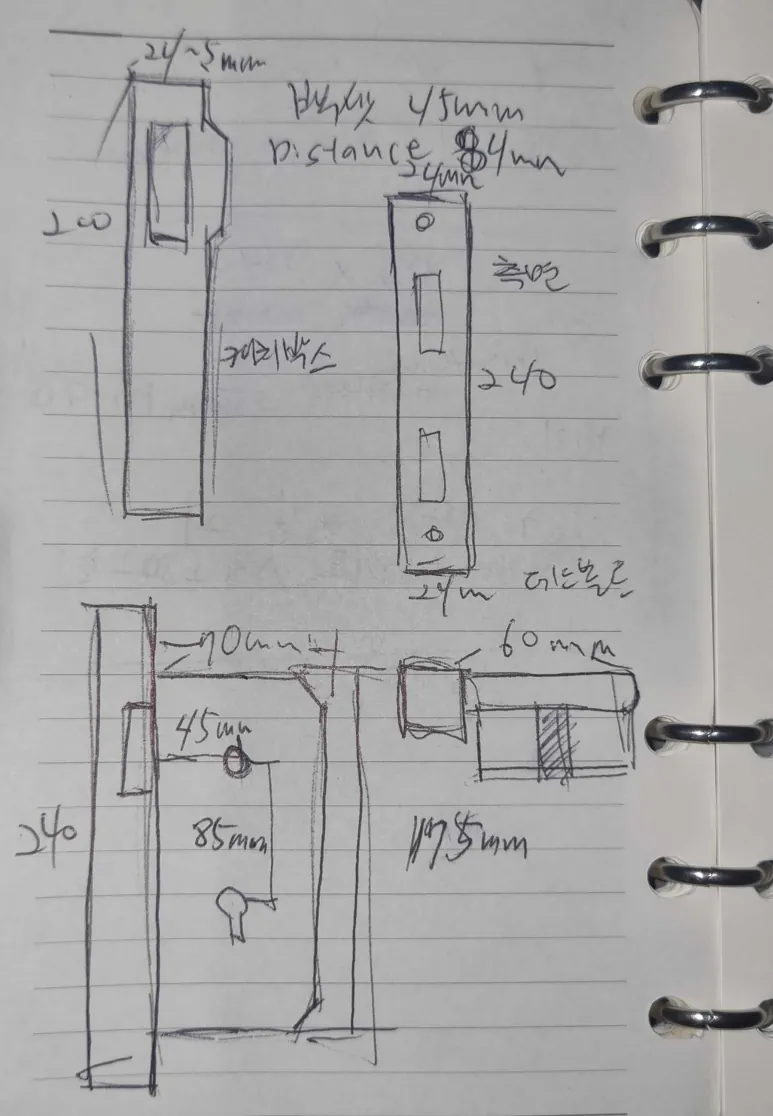 24~5mm
백쎗 45mm
Distance 84mm
24mm
200
측면
캐리박스
240
24m
데드볼트
70mm
60mm
45mm
240
85mm
175mm